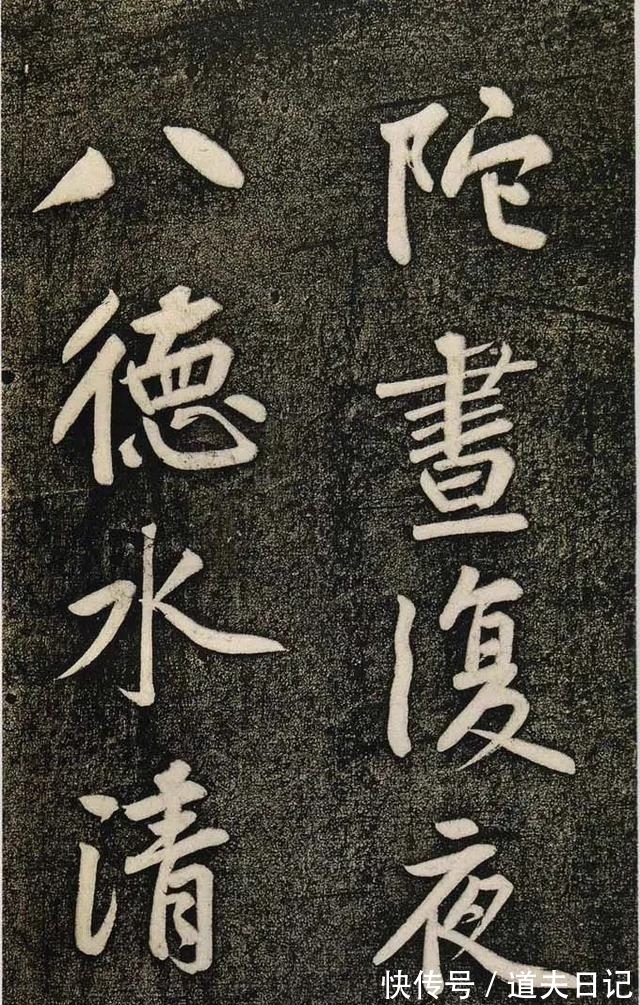 陀晝復夜
八德水清
快传号／道夫日记